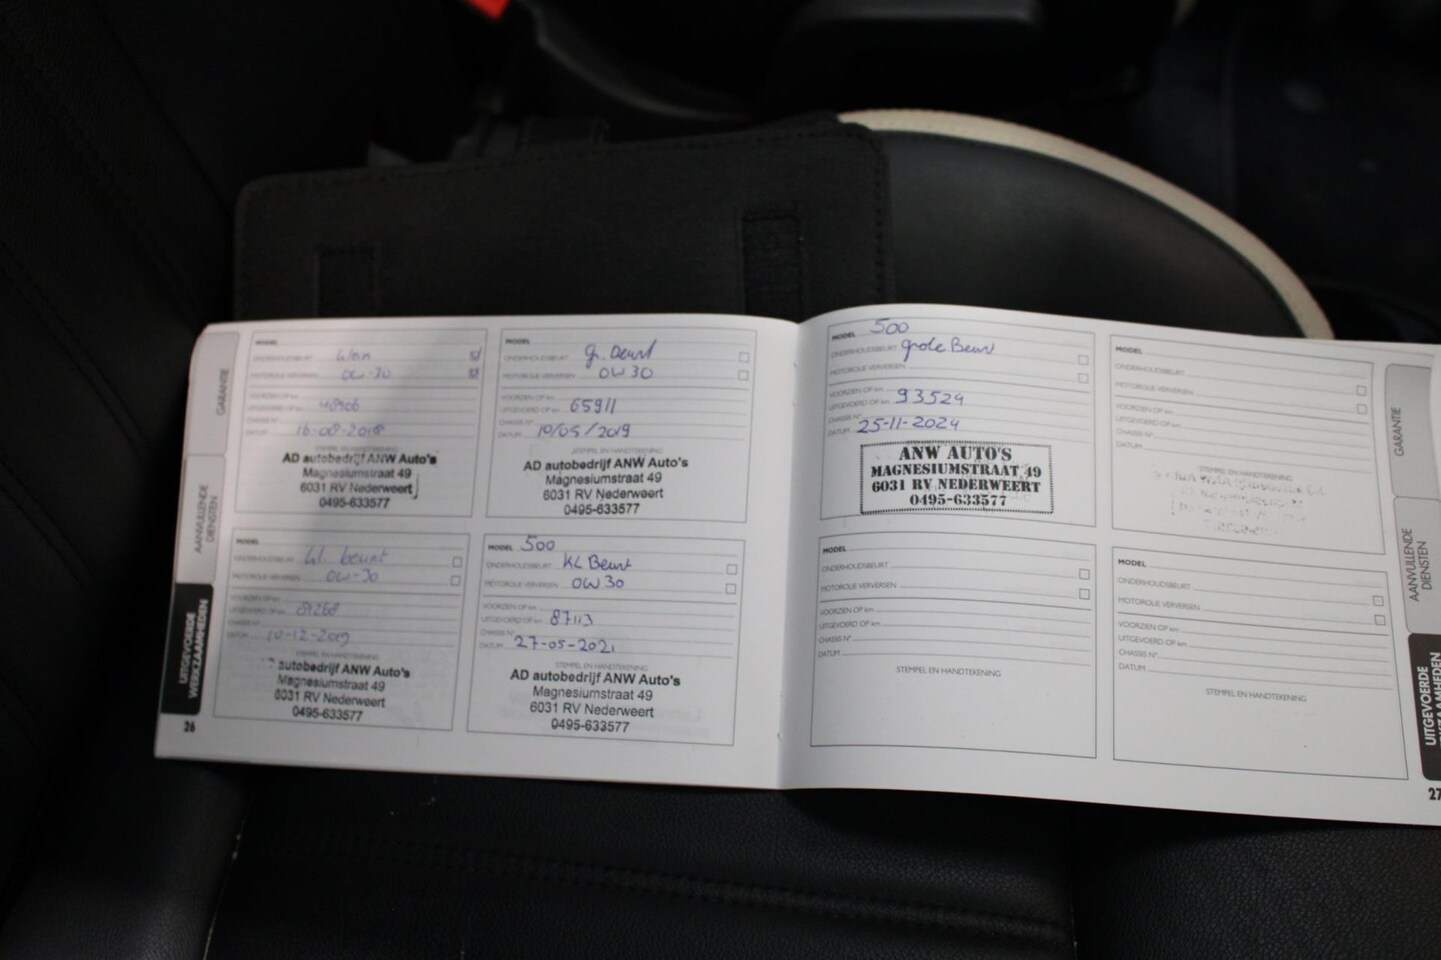 GARANTIE
AANVULLENDE
DIENSTEN
UITGEVOERDE
WERKZAAMHEDEN
26
MODEL
ONDERHOUDSBEURT
MOTOROLIE VERVERSEN 0W-30
VOORZIEN OP km
UITGEVOERD OP km
CHASSIS N°
DATUM 16-08-2018
STEMPEL EN HANDTEKENING
AD autobedrijf ANW Auto's
Magnesiumstraat 49
6031 RV Nederweert
0495-633577
MODEL
ONDERHOUDSBEURT gr. Beurt
MOTOROLIE VERVERSEN 0W30
VOORZIEN OP km
UITGEVOERD OP km 65911
CHASSIS N°
DATUM 10/05/2019
STEMPEL EN HANDTEKENING
AD autobedrijf ANW Auto's
Magnesiumstraat 49
6031 RV Nederweert
0495-633577
MODEL
ONDERHOUDSBEURT kl. beurt
MOTOROLIE VERVERSEN 0W-30
VOORZIEN OP km
UITGEVOERD OP km
CHASSIS N°
DATUM 10-12-2019
STEMPEL EN HANDTEKENING
autobedrijf ANW Auto's
Magnesiumstraat 49
6031 RV Nederweert
0495-633577
MODEL 500
ONDERHOUDSBEURT KL Beurt
MOTOROLIE VERVERSEN 0W30
VOORZIEN OP km
UITGEVOERD OP km 87113
CHASSIS N°
DATUM 27-05-2021
STEMPEL EN HANDTEKENING
AD autobedrijf ANW Auto's
Magnesiumstraat 49
6031 RV Nederweert
0495-633577
MODEL 500
ONDERHOUDSBEURT grote Beurt
MOTOROLIE VERVERSEN
VOORZIEN OP km
UITGEVOERD OP km 93524
CHASSIS N°
DATUM 25-11-2024
ANW AUTO'S
MAGNESIUMSTRAAT 49
6031 RV NEDERWEERT
0495-633577
MODEL
ONDERHOUDSBEURT
MOTOROLIE VERVERSEN
VOORZIEN OP km
UITGEVOERD OP km
CHASSIS N°
DATUM
STEMPEL EN HANDTEKENING
MODEL
ONDERHOUDSBEURT
MOTOROLIE VERVERSEN
VOORZIEN OP km
UITGEVOERD OP km
CHASSIS N°
DATUM
STEMPEL EN HANDTEKENING
MODEL
ONDERHOUDSBEURT
MOTOROLIE VERVERSEN
VOORZIEN OP km
UITGEVOERD OP km
CHASSIS N°
DATUM
STEMPEL EN HANDTEKENING
GARANTIE
AANVULLENDE
DIENSTEN
UITGEVOERDE
27